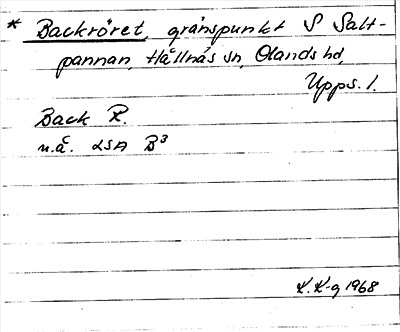 * Backröret, gränspunkt S Salt-
pannan, Hållnäs sn, Olands hd,
Upps. l.
Back R.
n.ä. LSA B3
K. K-g 1968